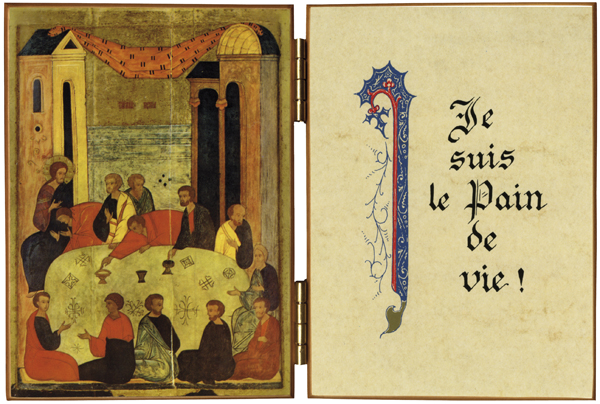 Je
suis
le Pain
de
vie !